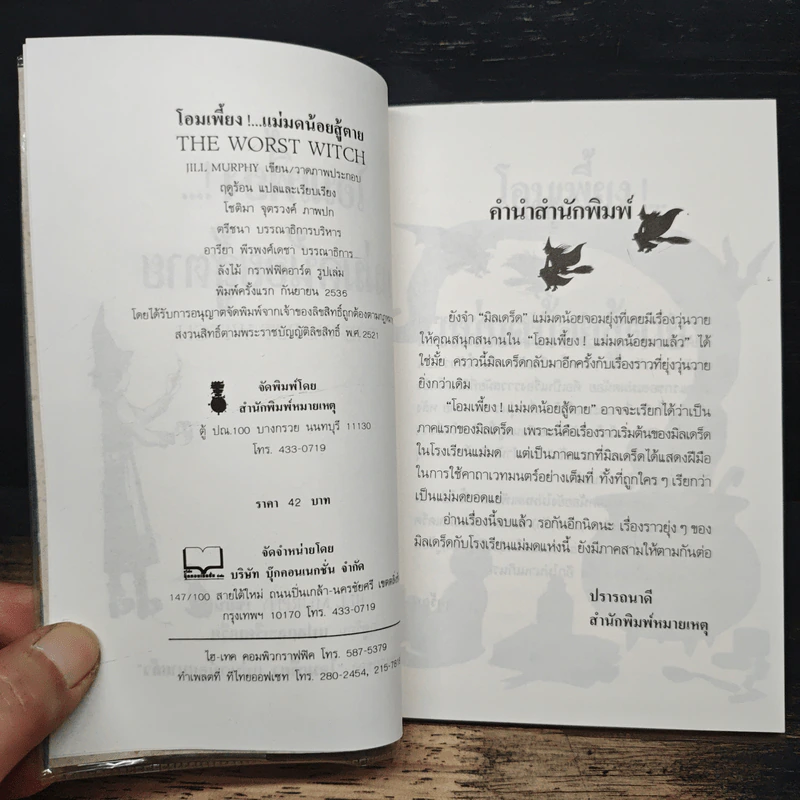 โอมเพี้ยง!...แม่มดน้อยสู้ตาย
THE WORST WITCH
JILL MURPHY เขียน/วาดภาพประกอบ
ฤดูร้อน แปลและเรียบเรียง
โชติมา จุตรวงค์ ภาพปก
ตรีชนา บรรณาธิการบริหาร
อารียา พีรพงศ์เดชา บรรณาธิการ
ลังไม้ กราฟฟิคอาร์ต รูปเล่ม
พิมพ์ครั้งแรก กันยายน 2536
โดยได้รับการอนุญาตจัดพิมพ์จากเจ้าของลิขสิทธิ์ถูกต้องตามกฎหมาย
สงวนสิทธิ์ตามพระราชบัญญัติลิขสิทธิ์ พ.ศ.2521
จัดพิมพ์โดย
สำนักพิมพ์หมายเหตุ
ตู้ ปณ.100 บางกรวย นนทบุรี 11130
โทร. 433-0719
ราคา 42 บาท
จัดจำหน่ายโดย
บริษัท บุ๊กคอนเนกชั่น จำกัด
147/100 สายใต้ใหม่ ถนนปิ่นเกล้า-นครชัยศรี
กรุงเทพฯ 10170 โทร. 433-0719
ไฮ-เทค คอมพิวกราฟฟิค โทร. 587-5379
ทำเพลตที่ ทีไทยออฟเซท โทร. 280-2454,
คำนำสำนักพิมพ์
ยังจำ “มิลเดร็ด” แม่มดน้อยจอมยุ่งที่เคยมีเรื่องวุ่นวาย
ให้คุณสนุกสนานใน “โอมเพี้ยง! แม่มดน้อยมาแล้ว” ได้
ใช่มั้ย คราวนี้มิลเดร็ดกลับมาอีกครั้งกับเรื่องราวที่ยุ่งวุ่นวาย
ยิ่งกว่าเดิม
“โอมเพี้ยง! แม่มดน้อยสู้ตาย” อาจจะเรียกได้ว่าเป็น
ภาคแรกของมิลเดร็ด เพราะนี่คือเรื่องราวเริ่มต้นของมิลเดร็ด
ในโรงเรียนแม่มด แต่เป็นภาคแรกที่มิลเดร็ดได้แสดงฝีมือ
ในการใช้คาถาเวทมนตร์อย่างเต็มที่ ทั้งที่ถูกใคร ๆ เรียกว่า
เป็นแม่มดยอดแย่
อ่านเรื่องนี้จบแล้ว รอกันอีกนิดนะ เรื่องราวยุ่ง ๆ ของ
มิลเดร็ดกับโรงเรียนแม่มดแห่งนี้ ยังมีภาคสามให้ตามกันต่อ
ปรารถนาดี
สำนักพิมพ์หมายเหตุ